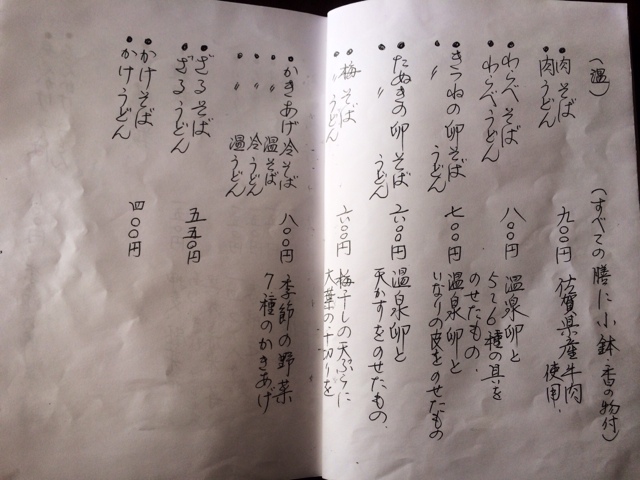 (温)
(すべての膳に小鉢・香の物付)
肉そば
肉うどん
九〇〇円
佐賀県産牛肉
使用.
わらべそば
わらべうどん
八〇〇円
温泉卵と
5~6種の具を
のせたもの.
きつねの卵そば
〃 うどん
七〇〇円
温泉卵と
いなりの皮をのせたもの
たぬきの卵そば
〃 うどん
六〇〇円
温泉卵と
天かすをのせたもの.
梅そば
〃うどん
六〇〇円
梅干しの天ぷらに
大葉の千切りを
かきあげ冷そば
〃 温そば
〃 冷うどん
〃 温うどん
八〇〇円
季節の野菜
7種のかきあげ
ざるそば
ざるうどん
五五〇円
かけそば
かけうどん
四〇〇円